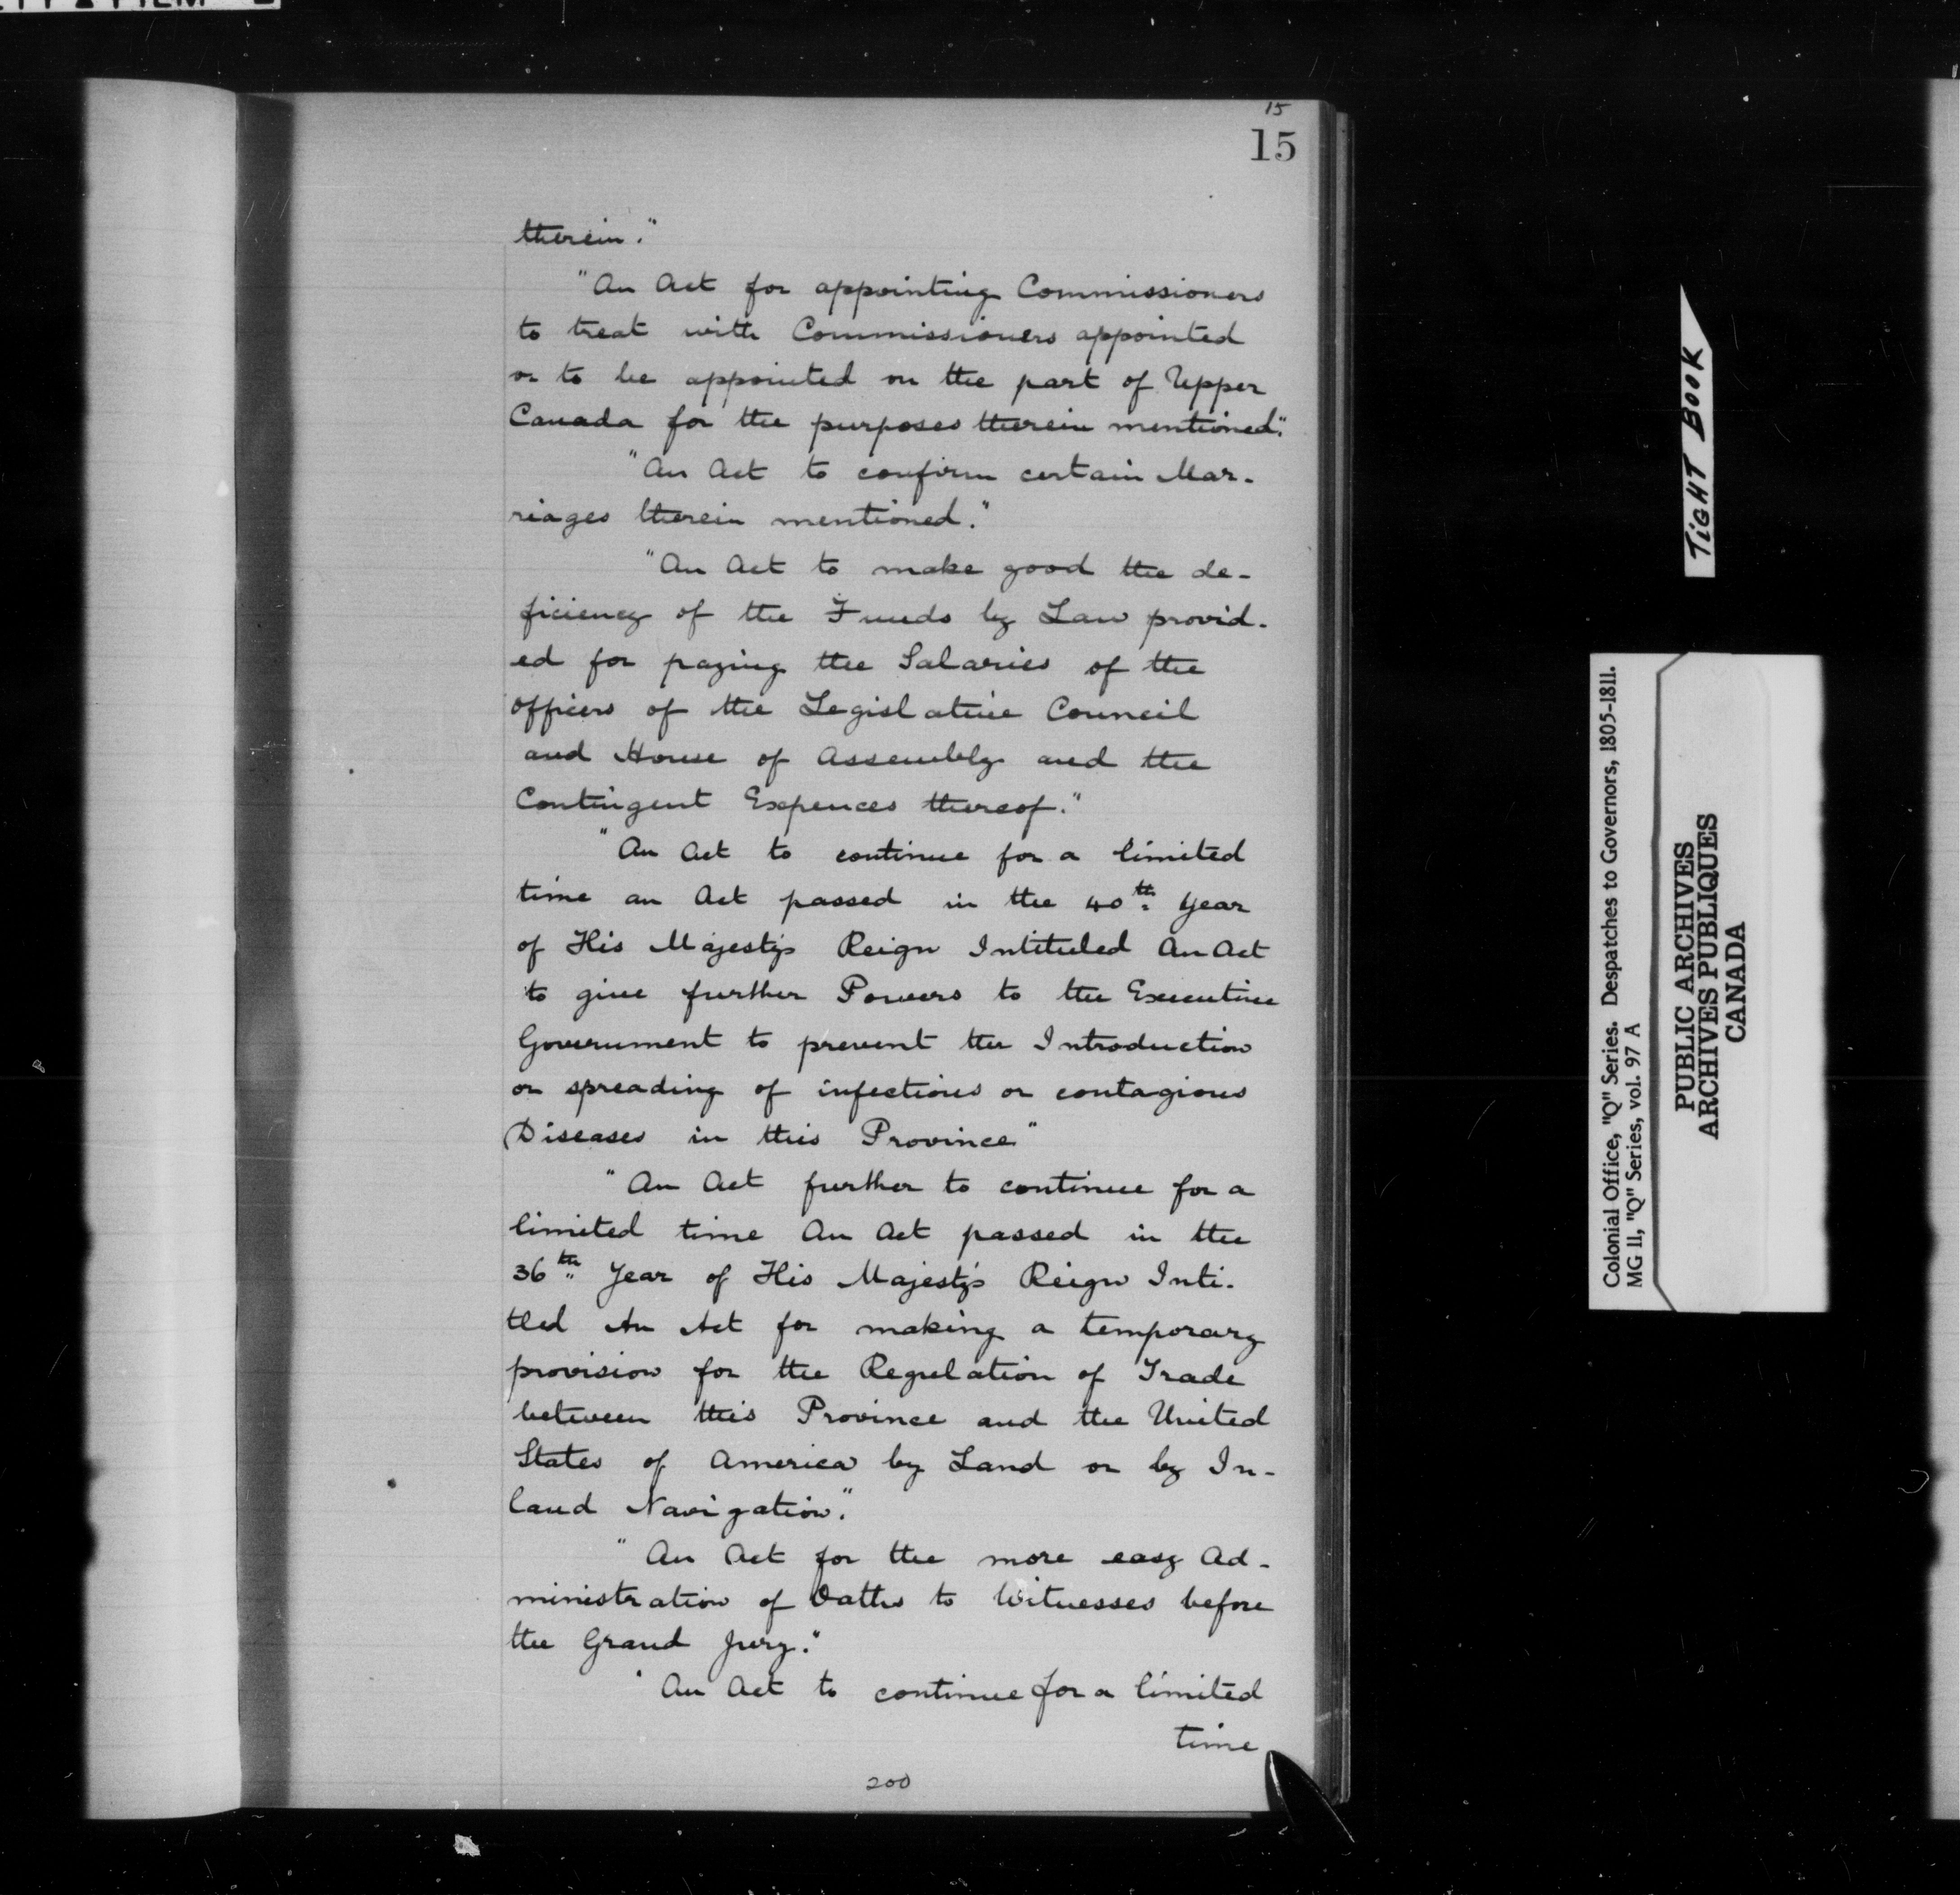 15
15
therein."
"An Act for appointing Commissioners
to treat with Commissioners appointed
or to be appointed on the part of Upper
Canada for the purposes therein mentioned."
"An Act to confirm certain Mar-
riages therein mentioned."
"An Act to make good the de-
ficiency of the Funds by Law provid-
ed for paying the Salaries of the
Officers of the Legislative Council
and House of Assembly and the
Contingent Expences thereof."
"An Act to continue for a limited
time an Act passed in the 40th Year
of His Majesty's Reign Intituled An Act
to give further Powers to the Executive
Government to prevent the Introduction
or spreading of infectious or contagious
Diseases in this Province"
"An Act further to continue for a
limited time An Act passed in the
36th Year of His Majesty's Reign Inti-
tled An Act for making a temporary
provision for the Regulation of Trade
between this Province and the United
States of America by Land or by In-
land Navigation."
"An Act for the more easy Ad-
ministration of Oaths to Witnesses before
the Grand Jury."
"An Act to continue for a limited
time
200
TIGHT BOOK
Colonial Office, "Q" Series. Despatches to Governors, 1805-1811.
MG 11, "Q" Series, vol. 97 A
PUBLIC ARCHIVES
ARCHIVES PUBLIQUES
CANADA